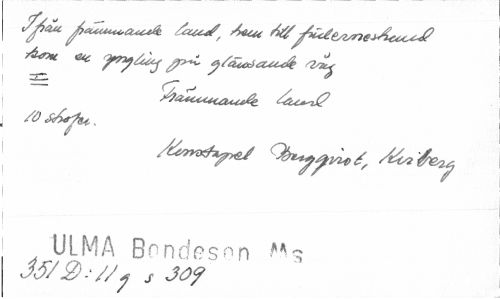 Ifrån främmande land, hem till fädernestrand
kom en yngling på glänsande våg
Främmande land
10 strofer.
Konstapel Bergqvist, Kviberg
ULMA Bondeson Ms
351 D:11 q s 309